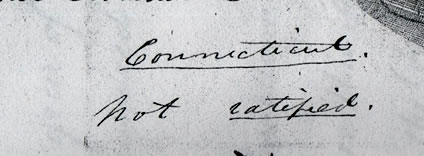 Connecticut.
Not ratified.